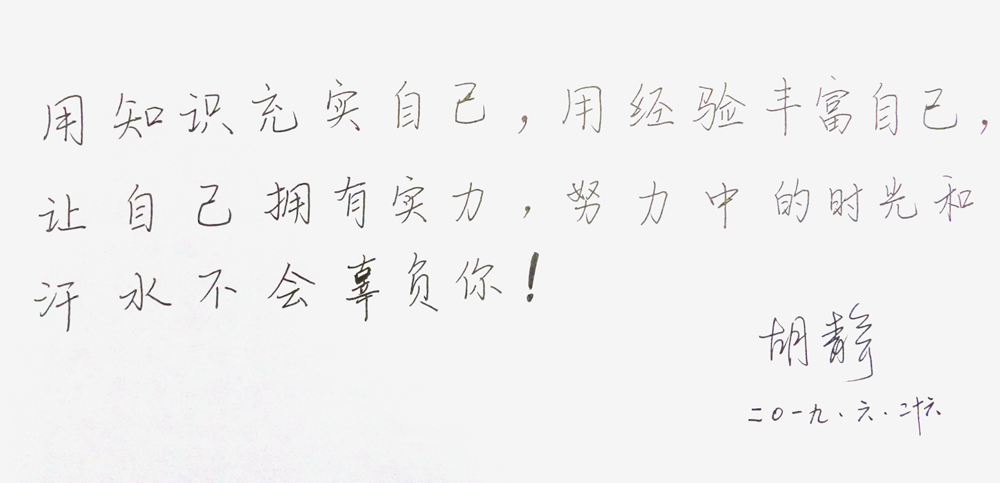 用知识充实自己，用经验丰富自己，
让自己拥有实力，努力中的时光和
汗水不会辜负你！
胡静
二〇一九.六.二十六